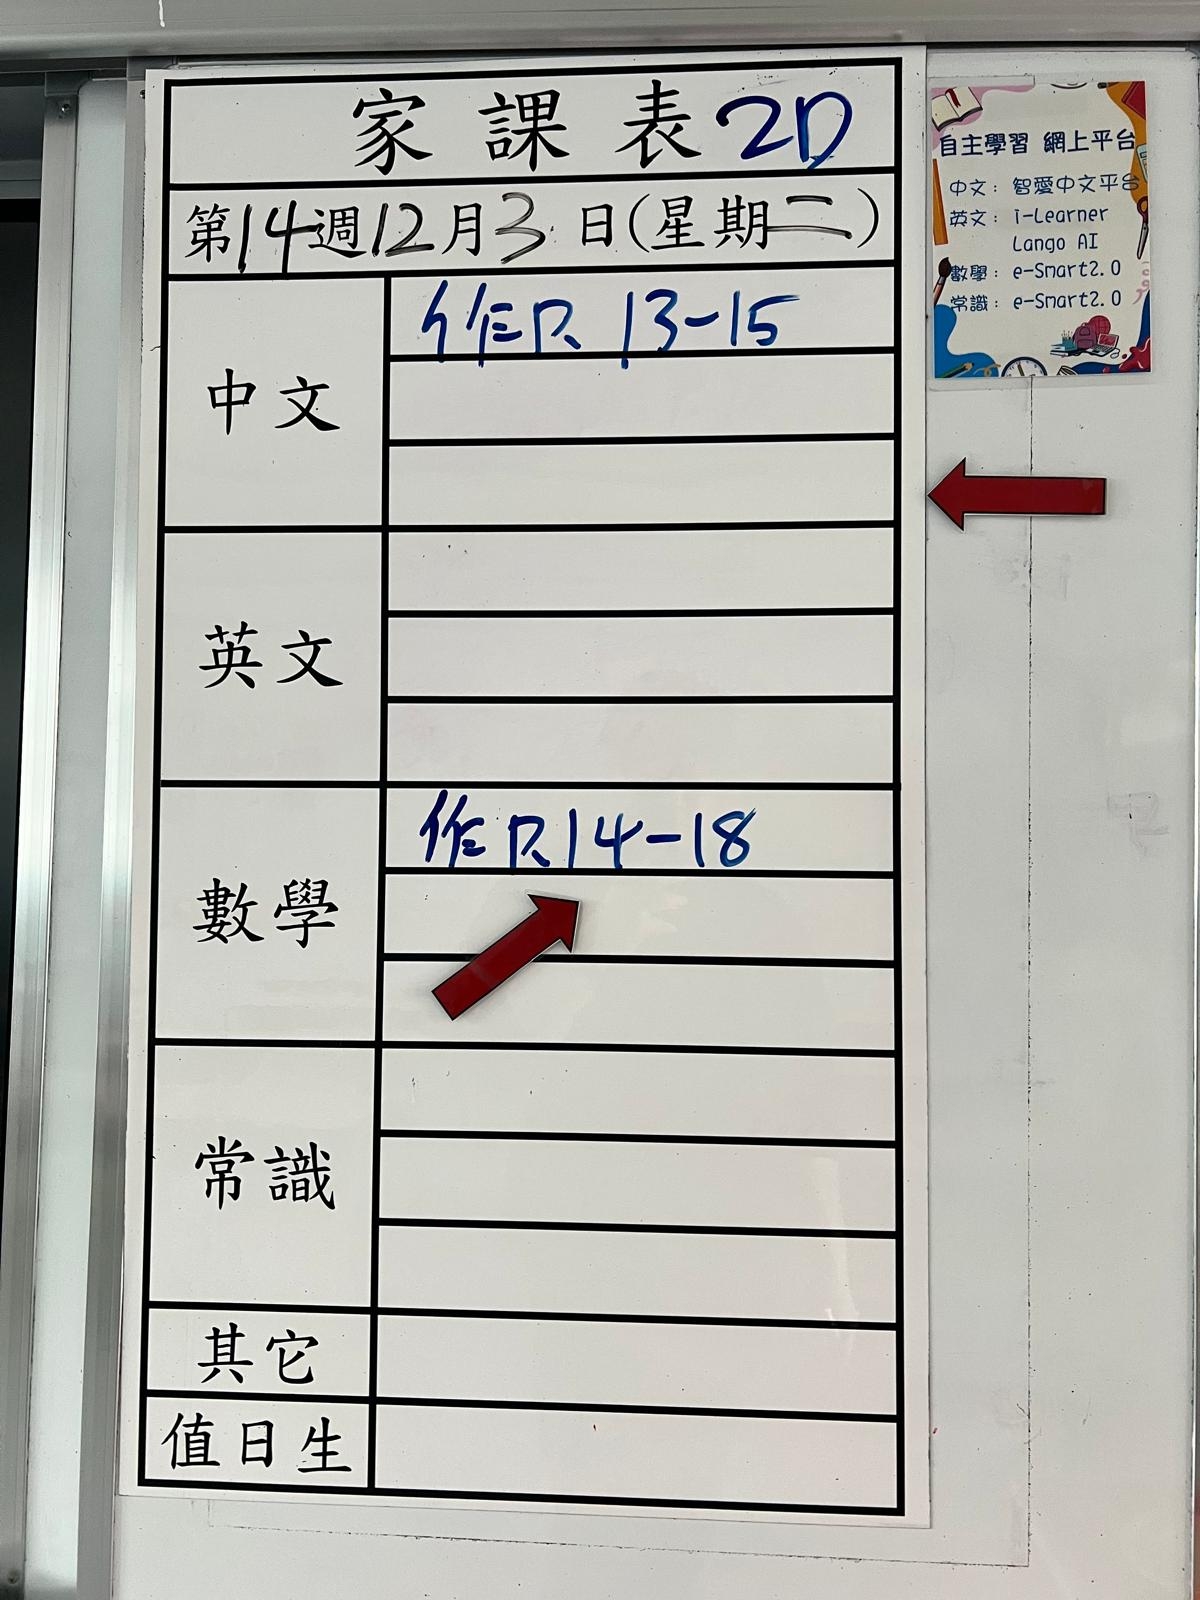 家課表 2D
第14週12月3日(星期二)
中文
作 P. 13-15
英文
數學
作 P. 14-18
常識
其它
值日生
自主學習 網上平台
中文: 智愛中文平台
英文: i-Learner
Lango AI
數學: e-Smart2.0
常識: e-Smart2.0